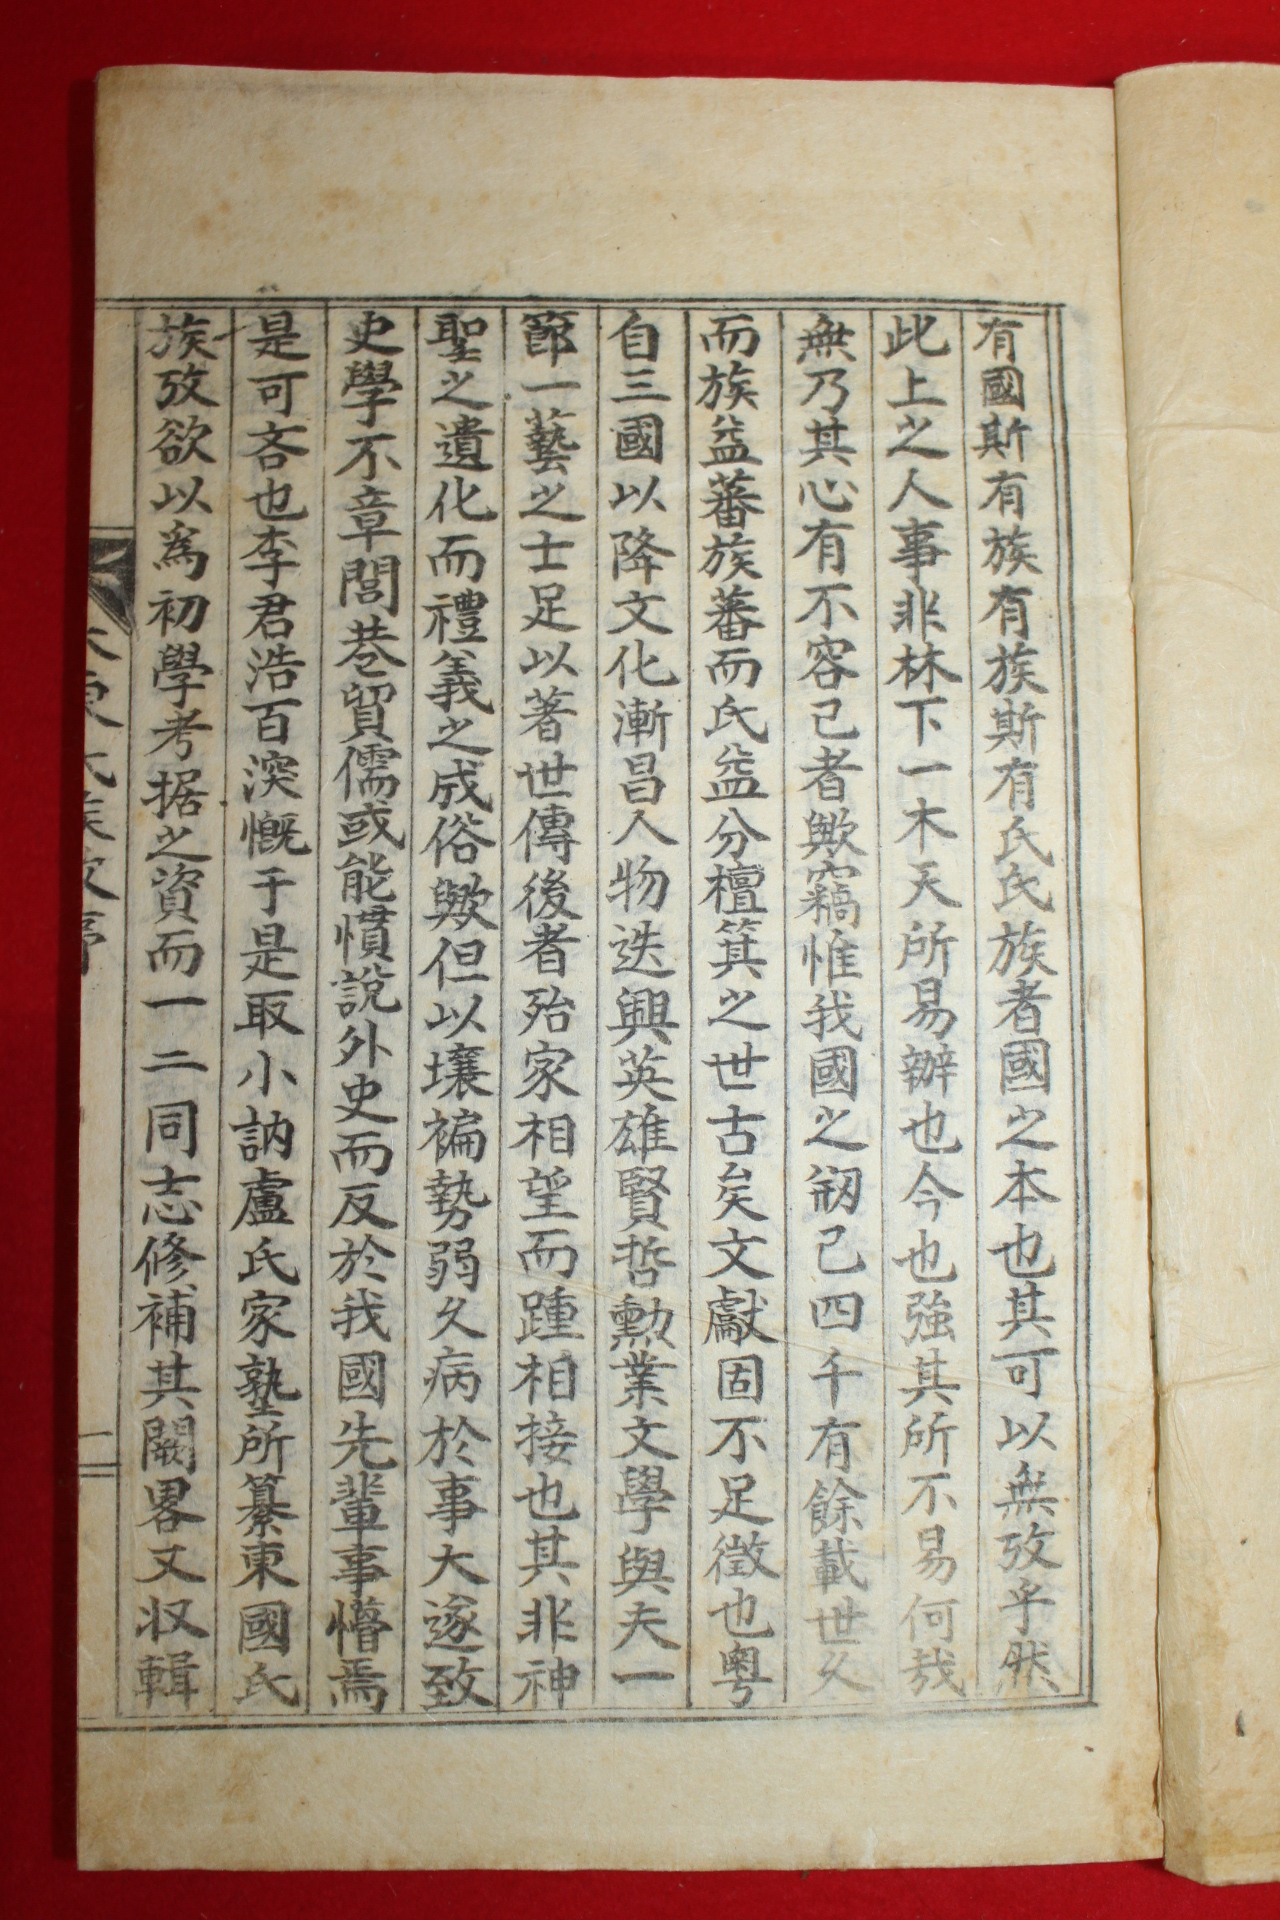 有國斯有族有族斯有氏氏族者國之本也其可以無攷乎然
此上之人事非林下一木天所易辦也今也強其所不易何哉
無乃其心有不容已者歟竊惟我國之刱已四千有餘載世久
而族益蕃族蕃而氏益分檀箕之世古矣文獻固不足徵也粤
自三國以降文化漸昌人物迭興英雄賢哲勳業文學與夫一
節一藝之士足以著世傳後者殆家相望而踵相接也其非神
聖之遺化而禮義之成俗歟但以壤褊勢弱久病於事大逐致
史學不章閭巷貿儒或能慣說外史而反於我國先輩事懵焉
是可吝也李君浩百深慨于是取小訥盧氏家塾所纂東國氏
族攷欲以爲初學考据之資而一二同志修補其闕畧又収輯
大東氏族攷序
一